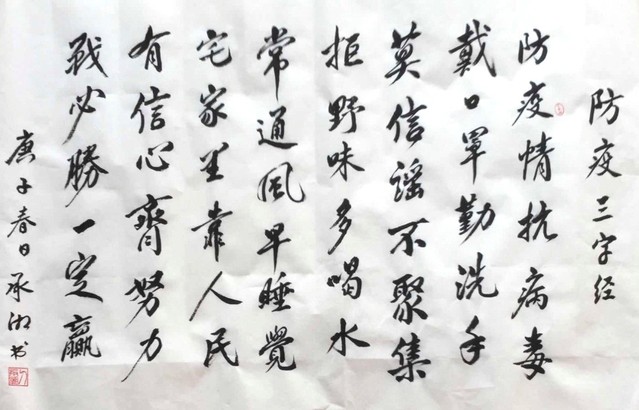 防疫三字经
防疫情抗病毒
戴口罩勤洗手
莫信谣不聚集
拒野味多喝水
常通风早睡覺
宅家里靠人民
有信心齊努力
战必勝一定赢
庚子春日承湘书